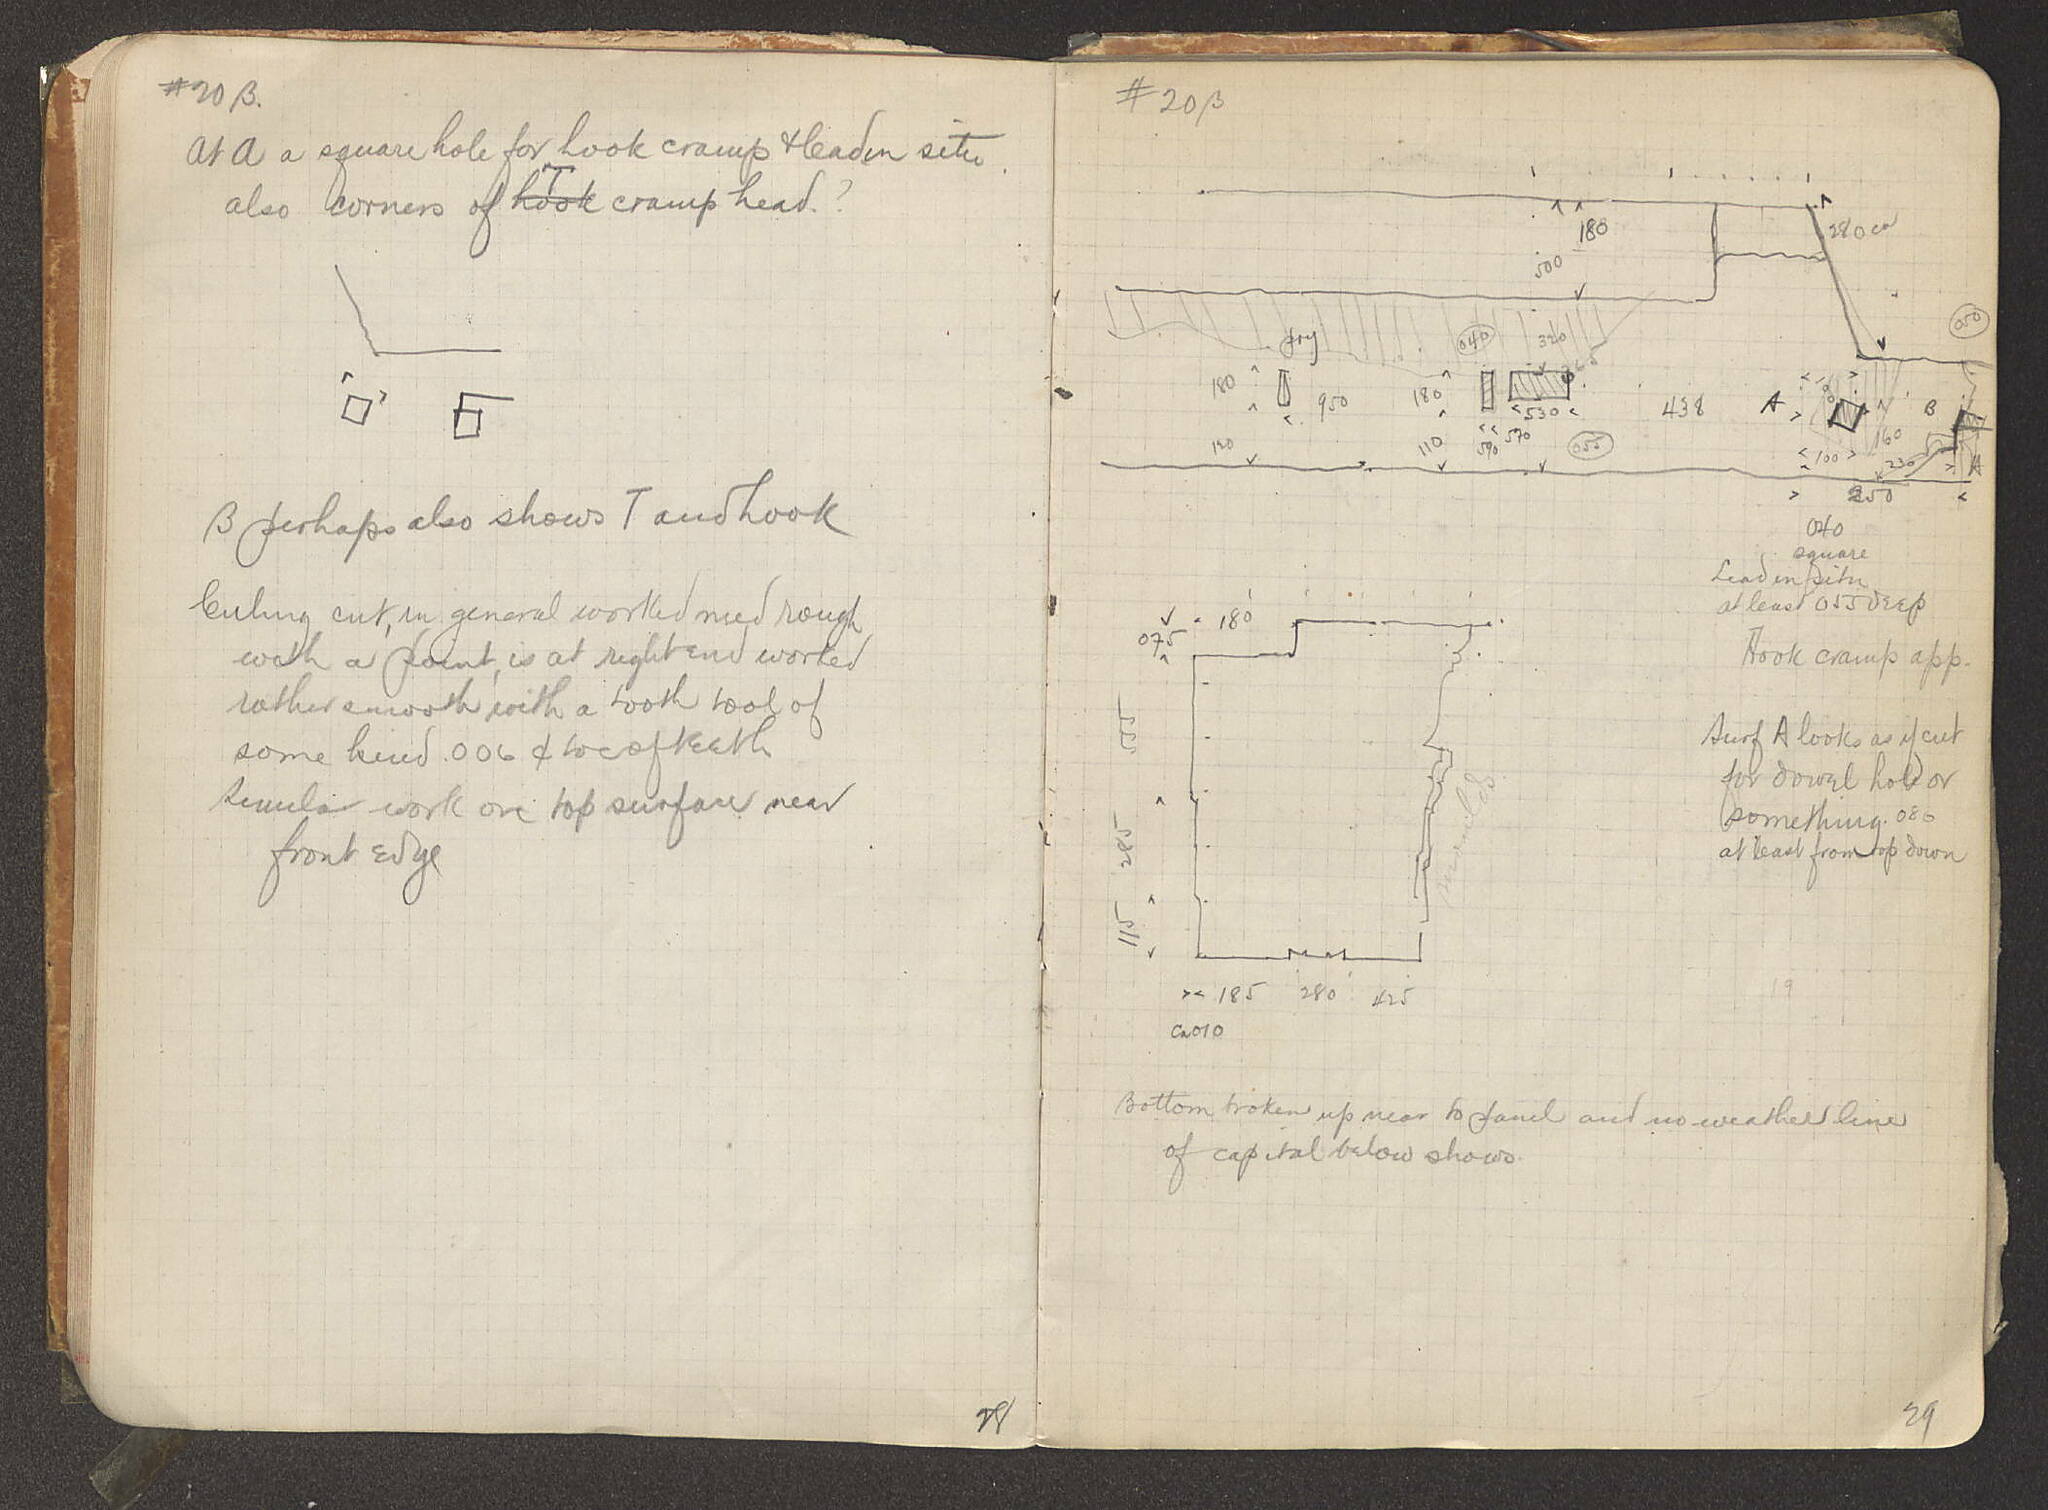 #20 B.
At A a square hole for hook cramp & lead in situ.
also corners of hook T cramp head?
B perhaps also shows T and hook
cut, in general worked med rough
with a point, is at right end worked
rather smooth with a tooth tool of
some kind .006 ¢ to ¢ of teeth
Similar work on top surface near
front edge
28
#20 B
180
280 ca
500
050
frg
040
320
180
950
180
530
438
A
B
120
110
590
570
055
160
100
230
A
250
040
square
Lead in situ
at least 055 deep
Hook cramp app.
180
075
555
285
115
Surf A looks as if cut
for dowel hole or
something. 080
at least from top down
19
185 280 425
ca 010
Bottom broken up near to panel and no weather line
of capital below shows.
29